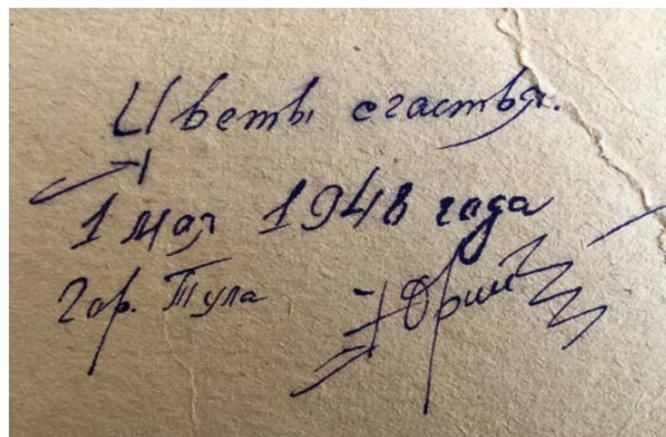 Цветы счастья.
1 мая 1948 года
гор. Тула